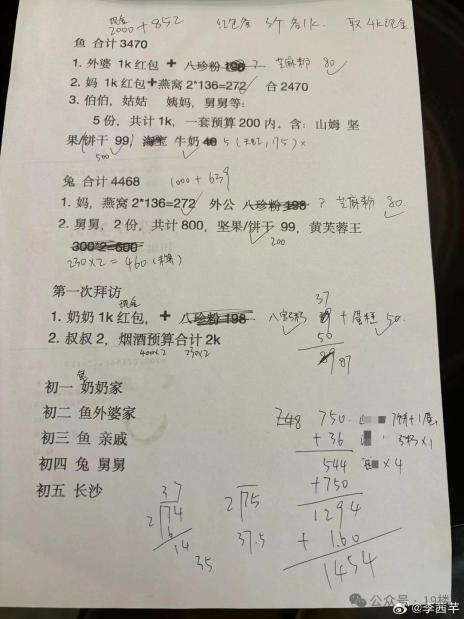 现金
2000+852 红包 3个各1k. 取4k现金
鱼 合计 3470
1. 外婆 1k 红包 + 八珍粉 198 ? 芝麻粉 80
2. 妈 1k 红包+燕窝 2*136=272 合 2470
3. 伯伯，姑姑 姨妈，舅舅等：
5 份，共计 1k，一套预算 200 内。含：山姆 坚
果/饼干 99， 牛奶 5
500
兔 合计 4468 1000+639
1. 妈，燕窝 2*136=272 外公 八珍粉 198 ? 芝麻粉 80.
2. 舅舅，2 份，共计 800，坚果/饼干 99，黄芙蓉王
200
300*2=600
230×2=460
第一次拜访
现金
1. 奶奶 1k 红包，+ 八珍粉 198 八宝粥 37 + 蛋糕 50.
50
87
2. 叔叔 2，烟酒预算合计 2k
400×2 230×2
初一 奶奶家
初二 鱼外婆家
初三 鱼 亲戚
初四 兔 舅舅
初五 长沙
750.
+ 36 ×1
544 ×4
+750
1294
+ 160
1454
37
2 74
6
14
35
2 75
37.5
公众号·19楼
@李茜芊